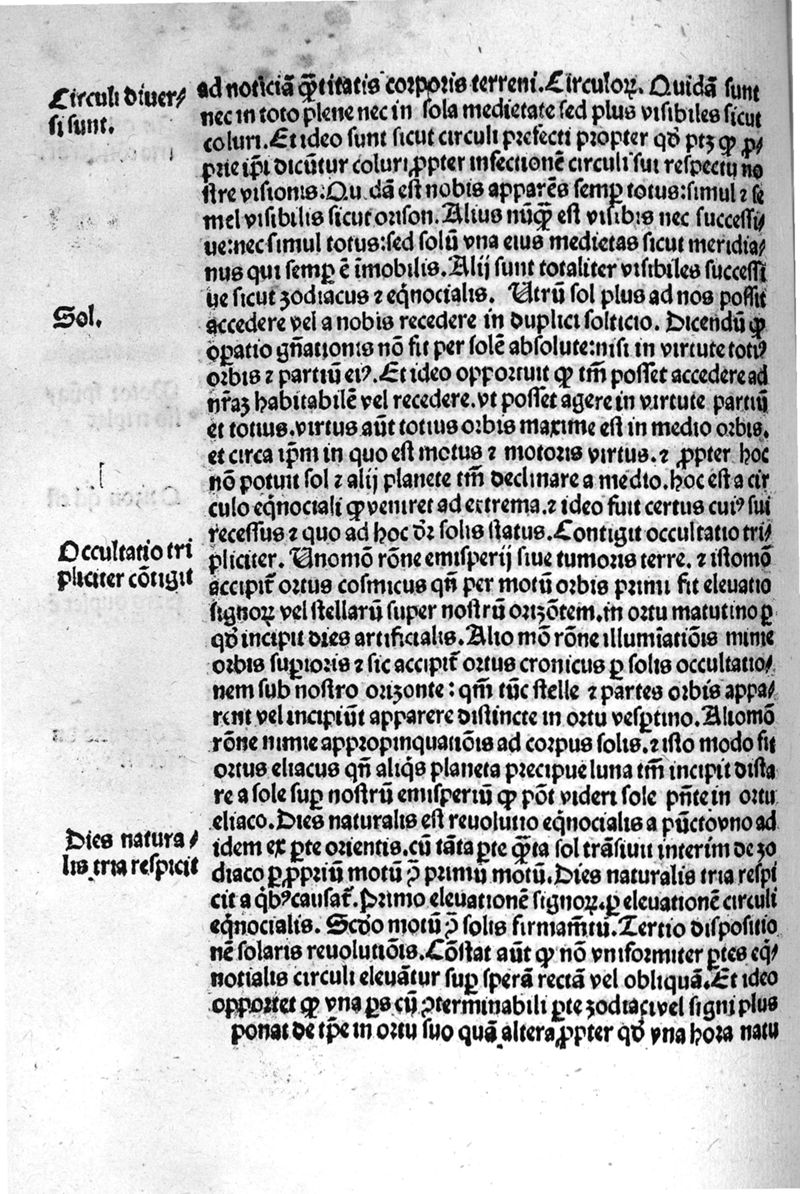 Circuli diuer⸗
si sunt.
ad noticiā q̄titatis corporis terreni. Circuloꝝ. Quidā sunt
nec in toto plene nec in sola medietate sed plus visibiles sicut
coluri. Et ideo sunt sicut circuli prefecti propter qď ptꝫ ꝙ ꝓ⸗
prie ip̄i dicūtur coluri ꝓpter insectionē circuli sui respectu no
stre visionis. Qu dā est nobis apparēs semꝑ totus: simul ⁊ se
mel visibilis sicut orison. Alius nūq̄ est visibis nec successi⸗
ue: nec simul totus: sed solū vna eius medietas sicut meridia⸗
nus qui semꝑ ē īmobilis. Alij sunt totaliter visibiles successi
ue sicut zodiacus ⁊ eq̄nocialis. Utrū sol plus ad nos possit
Sol.
accedere vel a nobis recedere in duplici solticio. Dicendū ꝙ
oꝑatio gn̄ationis nō fit per solē absolute: nisi in virtute totiꝰ
orbis ⁊ partiū eiꝰ. Et ideo opportuit ꝙ tm̄ posset accedere ad
nr̄aꝫ habitabilē vel recedere. vt posset agere in virtute partiū
et totius. virtus aūt totius orbis maxime est in medio orbis.
et circa ip̄m in quo est motus ⁊ motoris virtus. ⁊ ꝓpter hoc
nō potuit sol ⁊ alij planete tm̄ declinare a medio. hoc est a cir
culo eq̄nociali ꝙ veniret ad extrema. ⁊ ideo fuit certus cuiꝰ sui
recessus ⁊ quo ad hoc dr̄ solis status. Contigit occultatio tri
Occultatio tri
pliciter cōtigit
pliciter. Unomō rōne emisperij siue tumoris terre. ⁊ istomō
accipit̄ ortus cosmicus qn̄ per motū orbis primi fit eleuatio
signoꝝ vel stellarū super nostrū orizōtem. in ortu matutino ꝑ
qď incipit dies artificialis. Alio mō rōne illumīatiōis nimie
orbis suꝑioris ⁊ sic accipit̄ ortus cronicus ꝑ solis occultatio⸗
nem sub nostro orizonte: qm̄ tūc stelle ⁊ partes orbis appa⸗
rent vel incipiūt apparere distincte in ortu vesꝑtino. Aliomō
rōne nimie appropinquatiōis ad corpus solis. ⁊ isto modo fit
ortus eliacus qn̄ aliq̄s planeta precipue luna tm̄ incipit dista
re a sole suꝑ nostrū emisperiū ꝙ pōt videri sole pn̄te in ortu
eliaco. Dies naturalis est reuolutio eq̄nocialis a pūcto vno ad
Dies natura⸗
lis tria respicit
idem ex ꝑte orientis. cū tāta ꝑte q̄ta sol trāsiuit interim de zo
diaco ꝑ ꝓpriū motū ꝯ̄ primū motū. Dies naturalis tria respi
cit a q̄bꝰ causat̄. Primo eleuationē signoꝝ. ꝑ eleuationē circuli
eq̄nocialis. Scďo motū ꝯ̄ solis firmam̄tū. Tertio dispositio
nē solaris reuolutiōis. Cōstat aūt ꝙ nō vniformiter ꝑtes eq̄⸗
notialis circuli eleuātur suꝑ sperā rectā vel obliquā. Et ideo
opportet ꝙ vna ꝑs cū ꝯterminabili ꝑte zodiaci vel signi plus
ponat de tp̄e in ortu suo quā altera ꝓpter qď vna hora natu